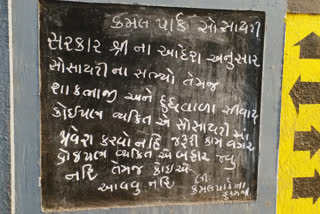 કમલ પાર્ક સોસાયટી
સરકાર શ્રી ના આદેશ અનુસાર
સોસાયટી ના સભ્યો તેમજ
શાકભાજી અને દુધવાળા સીવાય
કોઈપણ વ્યક્તિ એ સોસાયટી મા
પ્રવેશ કરવો નહિ જરૂરી કામ વગર
કોઇપણ વ્યક્તિ એ બહાર જવુ
નહિ તેમજ કોઇએ
આવવુ નહિ લી.
કમલપાર્કના